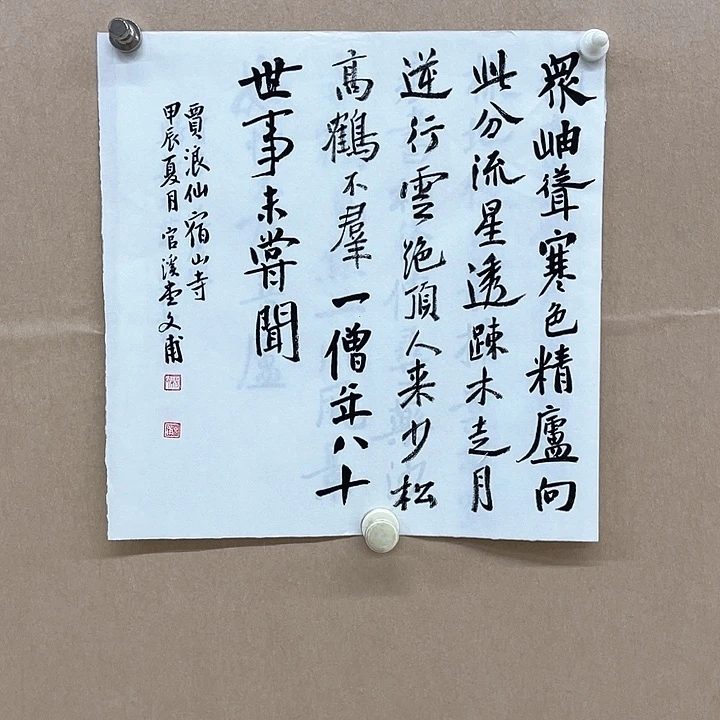 眾岫聳寒色精廬向
此分流星透踈木走月
逆行雲絶頂人来少松
高鶴不羣一僧年八十
世事未嘗聞
賈浪仙宿山寺
甲辰夏月官溪文甫